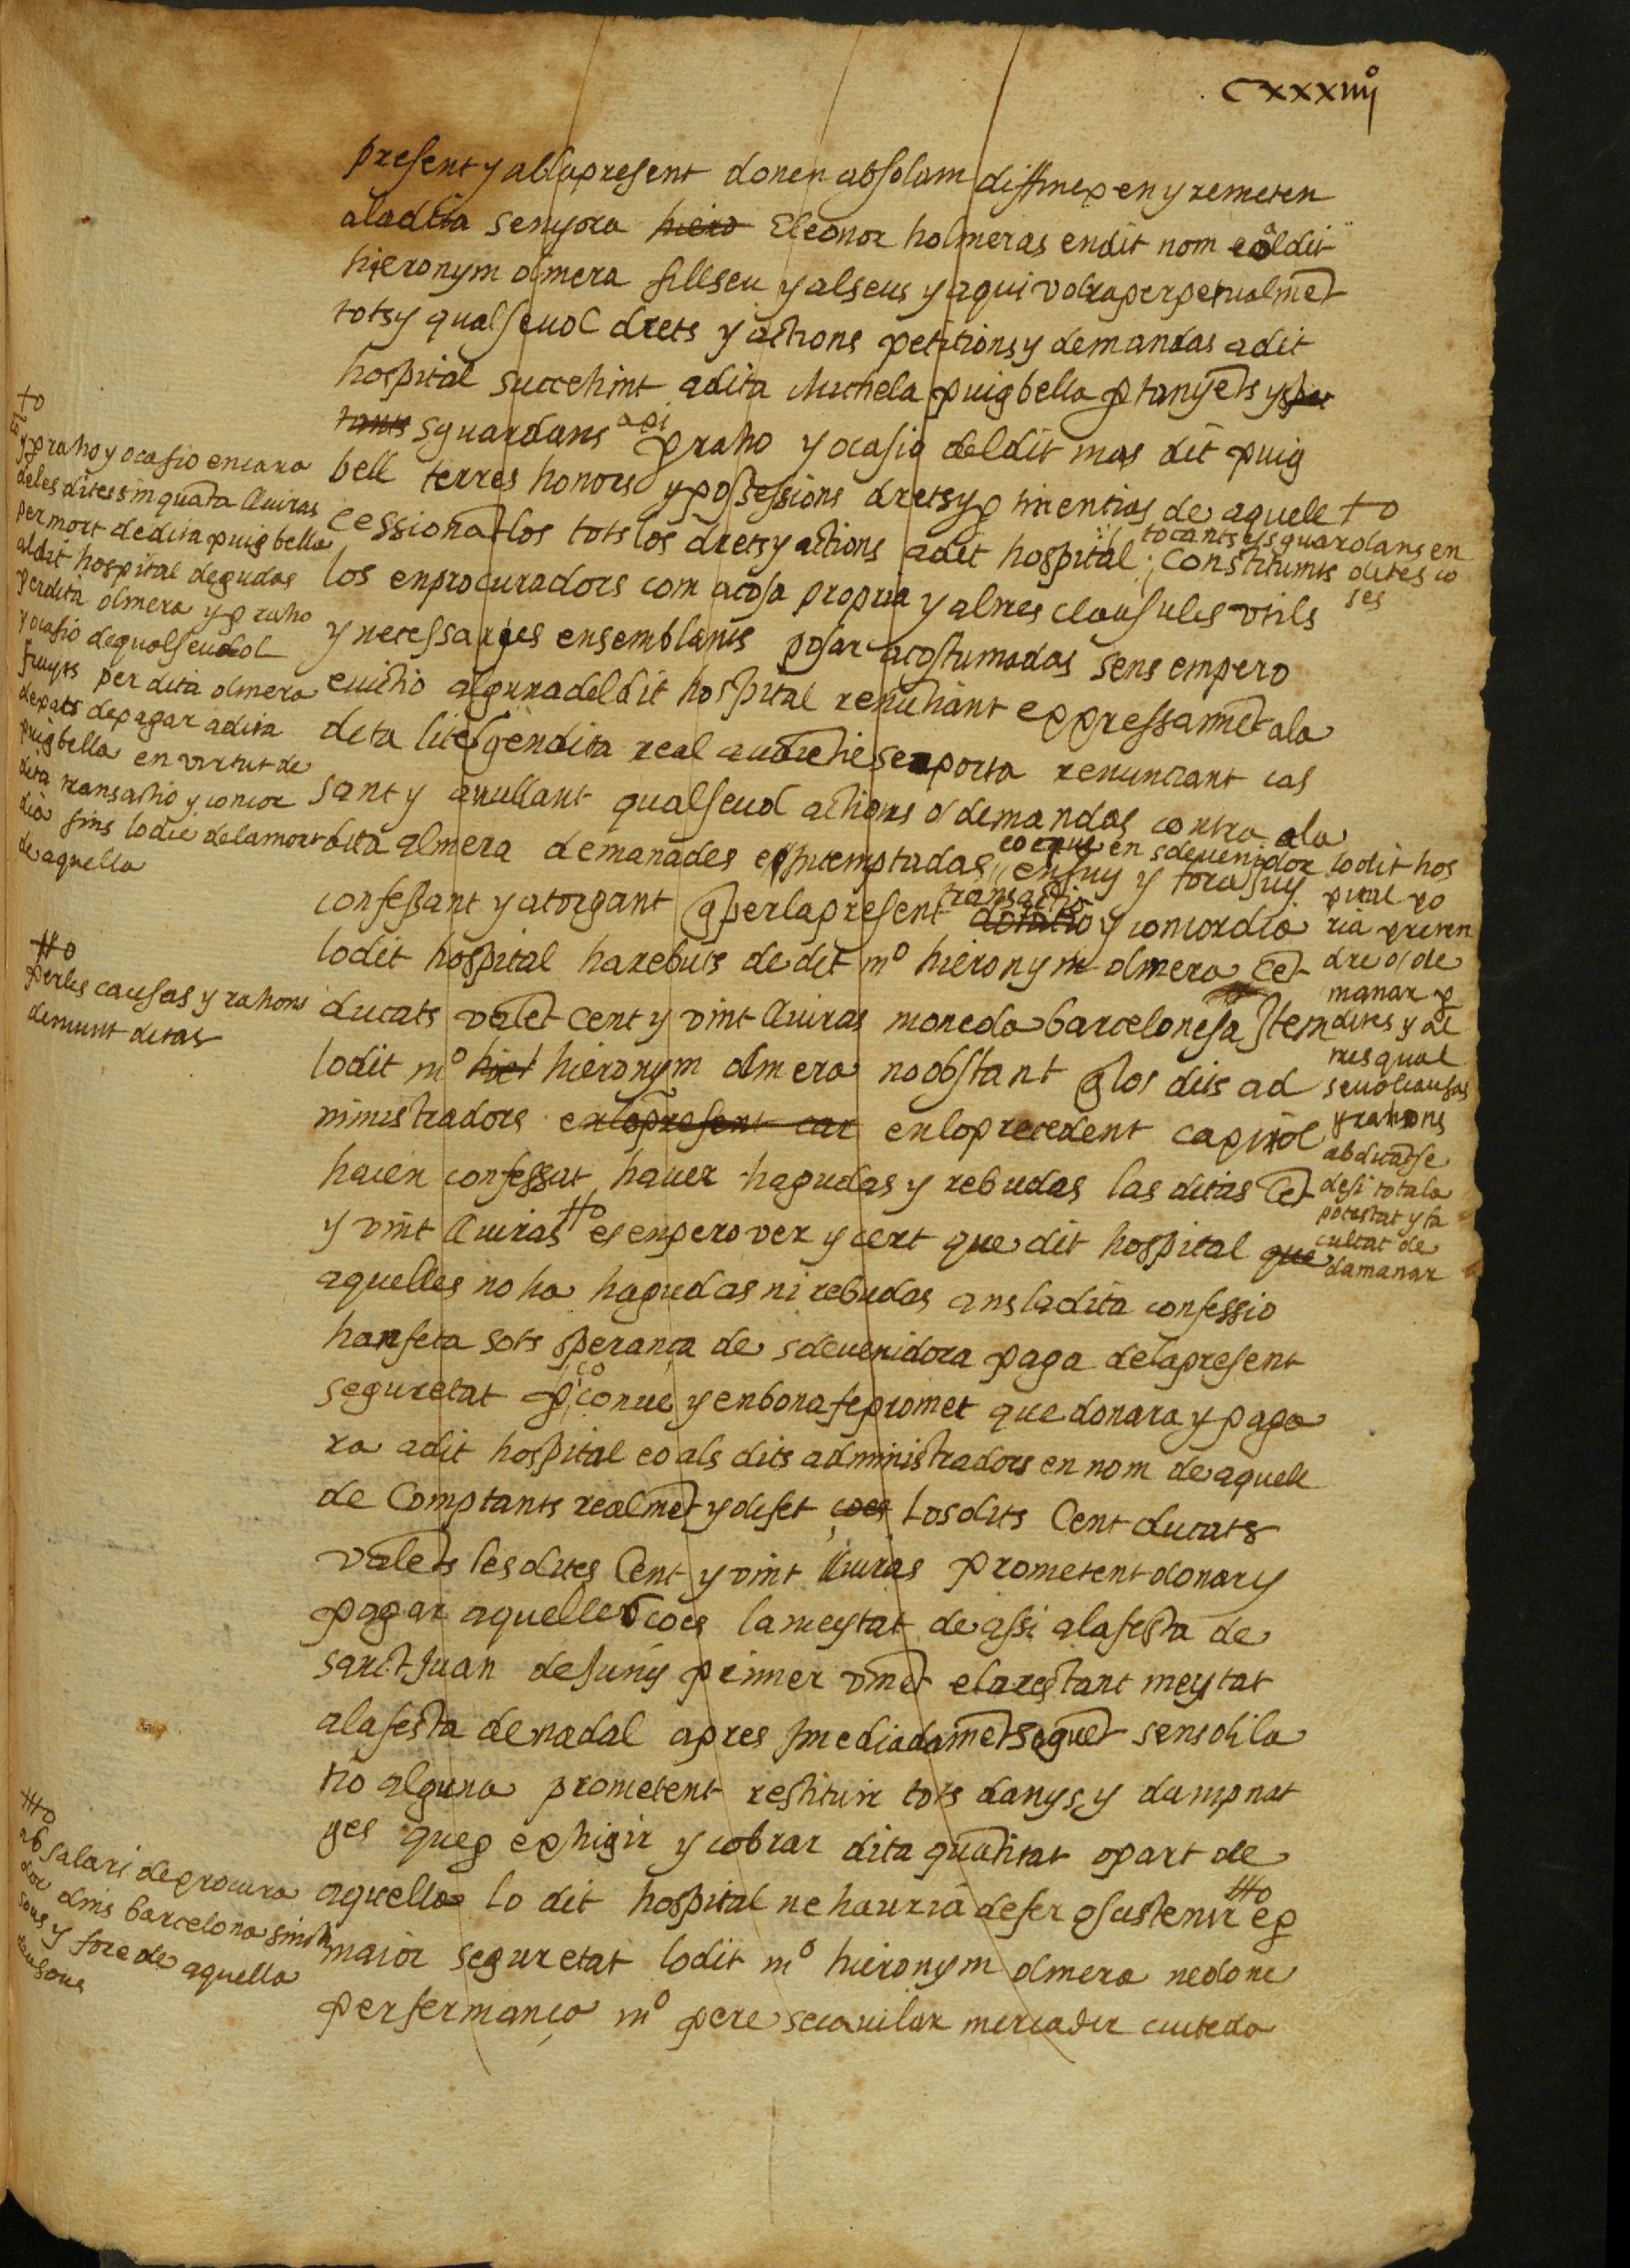 Cxxxiiijº
present y ab la present donen absolam diffinexen y remeten
a la dita senyora hiero Eleonor holmeras en dit nom eo al dit
hieronym olmera fill seu y als seus y a qui volra perpetualmēt
tots y qualseuol drets y actions petitions y demandas a dit
hospital succehint a dita Michela puigbella ꝑtanyēts y spec
tants sguardans axi ꝑ raho y ocasio del dit mas dit puig
bell terres honors y possessions drets y ꝑtinentias de aquell to
cessionāt los tots los drets y actions a dit hospital tocants e sguardans en
los en procuradors com a cosa propria y altres clausules vtils
dites co
ses
y necessaries en semblants posar acostumadas sens empero
euictio alguna del dit hospital renutiant expressamēt a la
dita lite ꝗ en dita real audiētie se aporta renuntiant cas
sant y anullant qualseuol actions o demandas contra a la
dita olmera demanades e intemptadas eo que en sdeuenidor lodit hos
en juy y fora juy
confessant y atorgant ꝗ per la present dotatio transactio y concordia
lo dit hospital ha rebuts de dit mº hieronym olmera Cēt
ducats valēt Cent y vint lliuras moneda barcelonesa Item
lo dit mº hiel hieronym olmera no obstant ꝗ los dits ad
ministradors en lo present cap en lo precedent capitol
haien confessat hauer hagudas y rebudas las ditas Cēt
y vint lliuras es empero ver y cert que dit hospital que
aquelles no ha hagudas ni rebudas ans la dita confessio
han feta sots sperança de sdeuenidora paga de la present
seguretat ꝑ ço conue y en bona fe promet que donara y paga
ra a dit hospital eo als dits administradors en nom de aquell
de Comptants realmēt y de fet çoes los dits Cent ducats
valēts les dites Cent y vint lliuras prometent donar y
pagar aquelles çoes la meytat de assi a la festa de
sanct Juan de Juny primer vinēt e la restant meytat
a la festa de nadal apres Immediadamēt seguēt sens dila
tio alguna prometent restituir tots danys y dampnat
ges que ꝑ exhigir y cobrar dita quātitat o part de
aquella lo dit hospital ne hauria de fer o sustenir e ꝑ
maior seguretat lo dit mº hieronym olmera ne done
per fermança mº pere secauilar mercader ciuteda
to
y ꝑ raho y ocasio encara
de les dites sinquāta lliuras
per mort de dita puigbella
al dit hospital degudas
per dita olmera y ꝑ raho
y ocasio de qualseuol
fruyts per dita olmera
depats de pagar a dita
puigbella en virtut de
dita transactio y concor
dia fins lo die de la mort
de aquella
tto
per les causas y rahons
demunt ditas
ttto
ab salari de procura
dor dins barcelona sinch
sous y fore de aquella
deu sous
pital po
ria preten
dre o de
manar ꝑ
dites y al
tres qual
seuol causas
y rahons
abdicātse
desi tota la
potestat y fa
cultat de
damanar